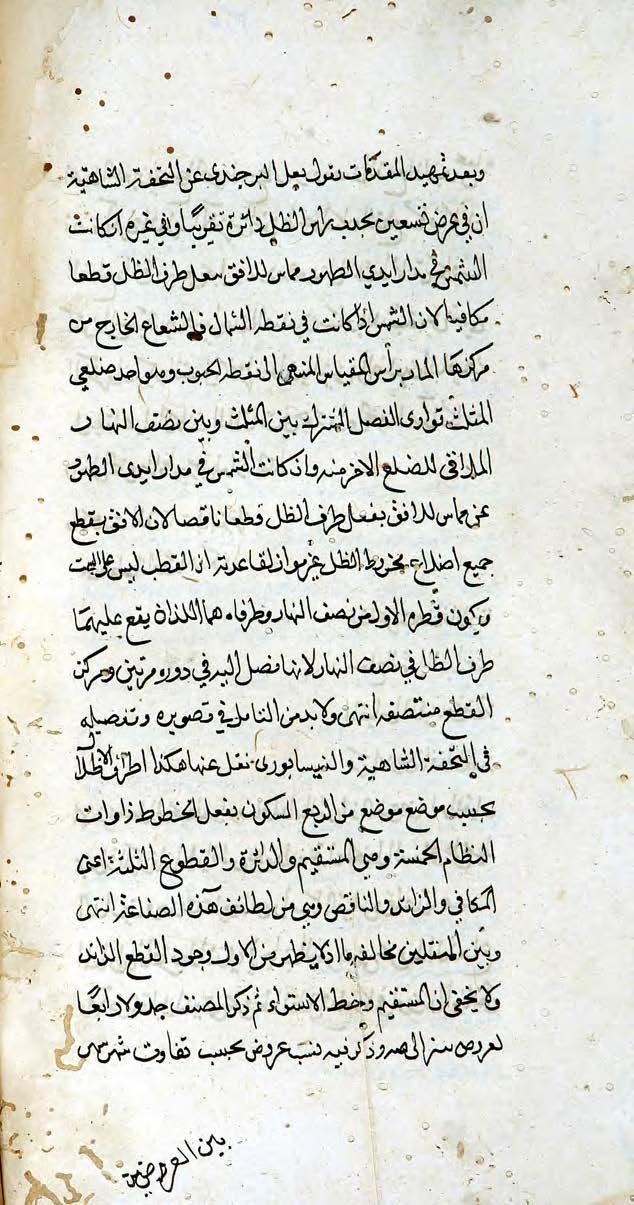 وبعد تمهيد المقدمات نقول نقل البرجندى عن التحفة الشاهية
ان فى عرض تسعين يحدث راس الظل دائرة تقريبا وفى غيره ان كانت
الشمس فى مدار ابدي الظهور مماس للافق يفعل طرف الظل قطعا
مكافيا لان الشمس اذا كانت فى نقطة الشمال فالشعاع الخارج من
مركزها المار برأس المقياس المنتهى الى نقطة الجنوب وهو احد ضلعي
المثلث توازى الفصل المشترك بين المثلث وبين نصف النهار
الملاقى للضلع الاخر منه وان كانت الشمس فى مدار ابدى الظهور
غير مماس للافق يفعل طرف الظل قطعا ناقصا لان الافق يقطع
جميع اضلاع مخروط الظل غير مواز لقاعدته اذ القطب ليس على السمت
ويكون قطره الاول من نصف النهار وطرفاه هما اللذان يقع عليهما
طرف الظل فى نصف النهار لانها تصل اليه فى دوره مرتين ومركز
القطع منتصفه انتهى ولا بد من التامل فى تصويره وتفصيله
فى التحفة الشاهية والنيسابورى نقل عنها هكذا اطراف الاظلال
بحسب موضع موضع من الربع المسكون يفعل الخطوط ذاوات
النظام الخمسة وهى المستقيم والدائرة والقطوع الثلثة اعنى
المكافي والزائد والناقص وهى من لطائف هذه الصناعة انتهى
وبين المنقلين مخالفة ما اذ لا يظهر من الاول وجود القطع الزائد
ولا يخفى ان المستقيم وخط الاستواء ثم ذكر المصنف جدولا رابعا
لعروض الى وذكر فيه نسب عروض بحسب تفاوت
بين العرضين